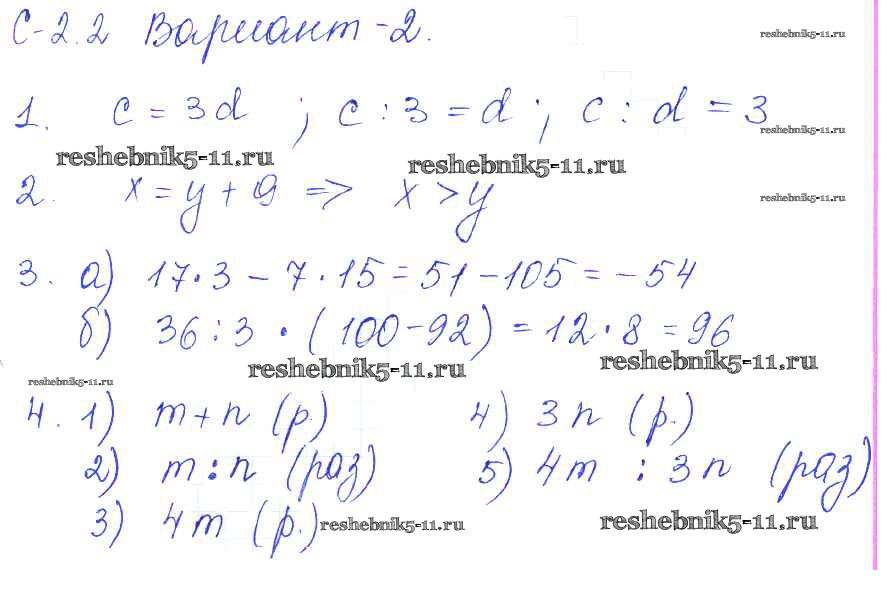 С-2.2 Вариант-2.
reshebnik5-11.ru
1. c = 3d ; c : 3 = d ; c : d = 3
reshebnik5-11.ru
reshebnik5-11.ru reshebnik5-11.ru
2. x = y + 9 => x > y
reshebnik5-11.ru
3. а) 17·3 - 7·15 = 51 - 105 = -54
б) 36 : 3 · (100 - 92) = 12·8 = 96
reshebnik5-11.ru reshebnik5-11.ru
reshebnik5-11.ru
4. 1) m + n (р.) 4) 3n (р.)
2) m : n (раз) 5) 4m : 3n (раз)
3) 4m (р.)
reshebnik5-11.ru reshebnik5-11.ru